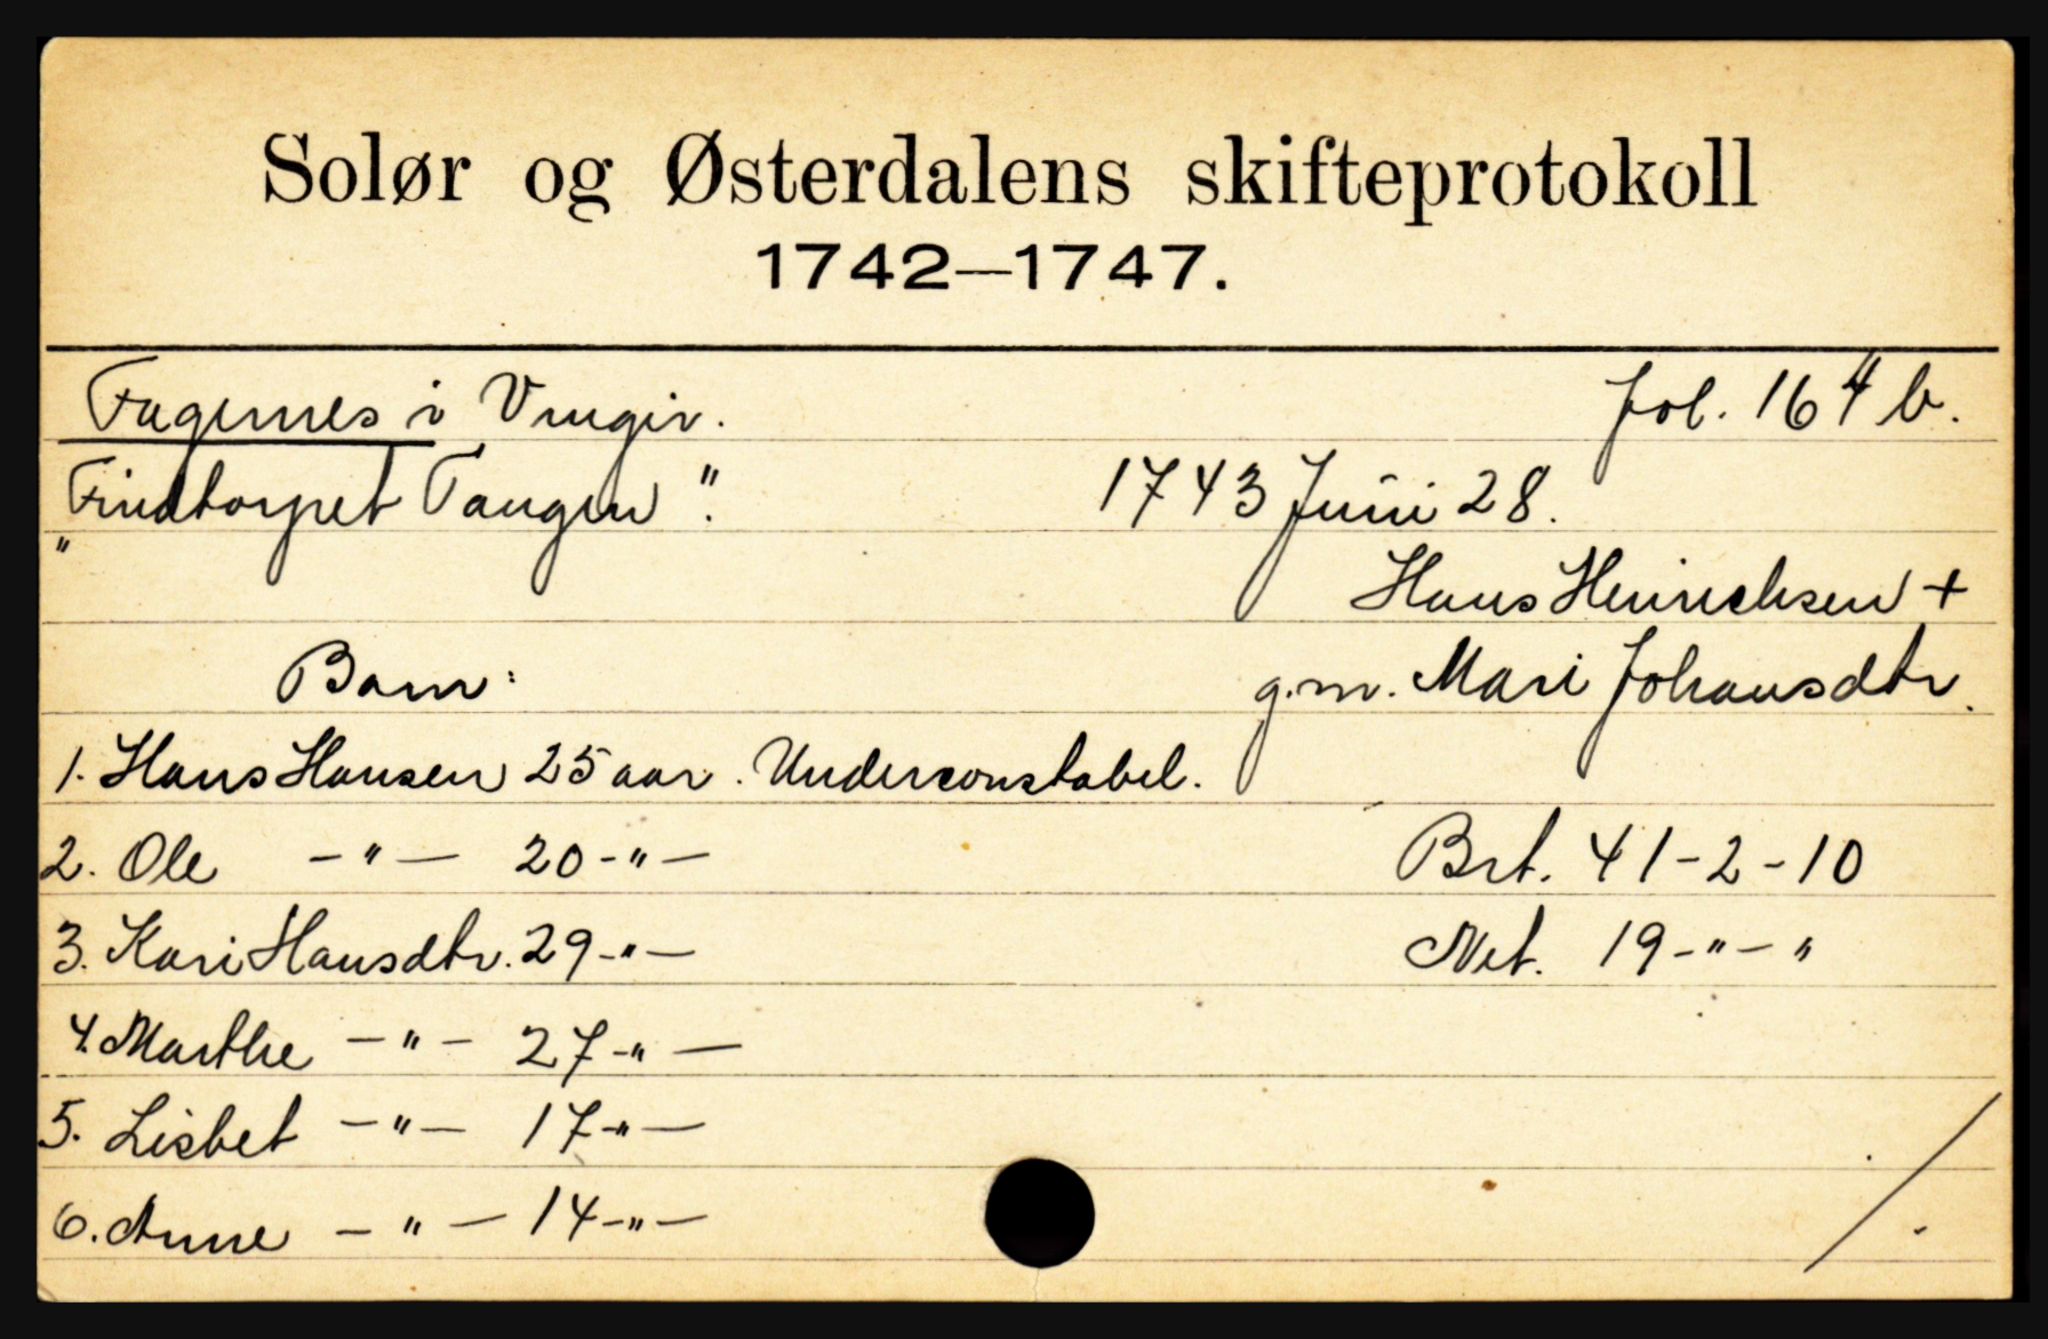 Solør og Østerdalens skifteprotokoll
1742—1747.
Fagernes i Vingir. fol. 164 b.
"Findtorpet Tangen ". 1743 Juni 28.
Hans Heinrichsen +
Barn: g.m. Mari Johansdtr.
1. Hans Hansen 25 aar. Underconstabel.
2. Ole -"- 20-"- Brt. 41-2-10
3. Kari Hansdtr. 29-"- Net. 19-"-"
4. Marthe -"- 27-"-
5. Lisbet -"- 17-"-
6. Anne -"- 14-"-